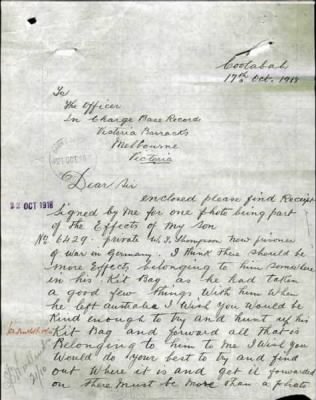 Coolabah
17th Oct. 1918
To
The Officer
In Charge Base Records
Victoria Barracks
Melbourne
Victoria
Dear Sir
enclosed please find Receipt
22 OCT 1918
Signed by Me for one photo being part
of the Effects of My Son
No 6429 private Thompson now prisoner
of war in Germany. I think There should be
More Effects belonging to him somewhere
in his Kit Bag as he had taken
a good few Things With him When
he left Australia I Wish You Would be
Kind enough to try and hunt up his
Kit Bag and forward all That is
Belonging to him to Me I Wish You
Would do Your best to try and find
out Where it is and get it forwarded
on There Must be More Than a photo